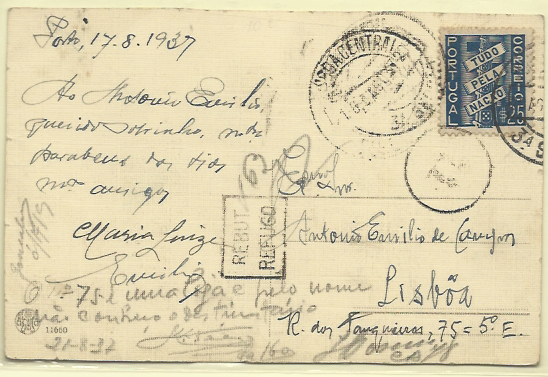 Porto, 17.8.1937
Ao Antonio Emilio,
querido sobrinho, mtos
parabens dos tios
mto amigos
Maria Luiza
Emilio
Exmo. Snr.
Antonio Emilio de Campos
Lisbôa
R. dos Fanqueiros, 75=5º E.
PORTUGAL
CORREIO
TUDO
PELA
NAÇÃO
$25
REBUT
REFUGO
O nº 75 é uma loja e pelo nome
não conheço o destinatário
21-8-37
11060